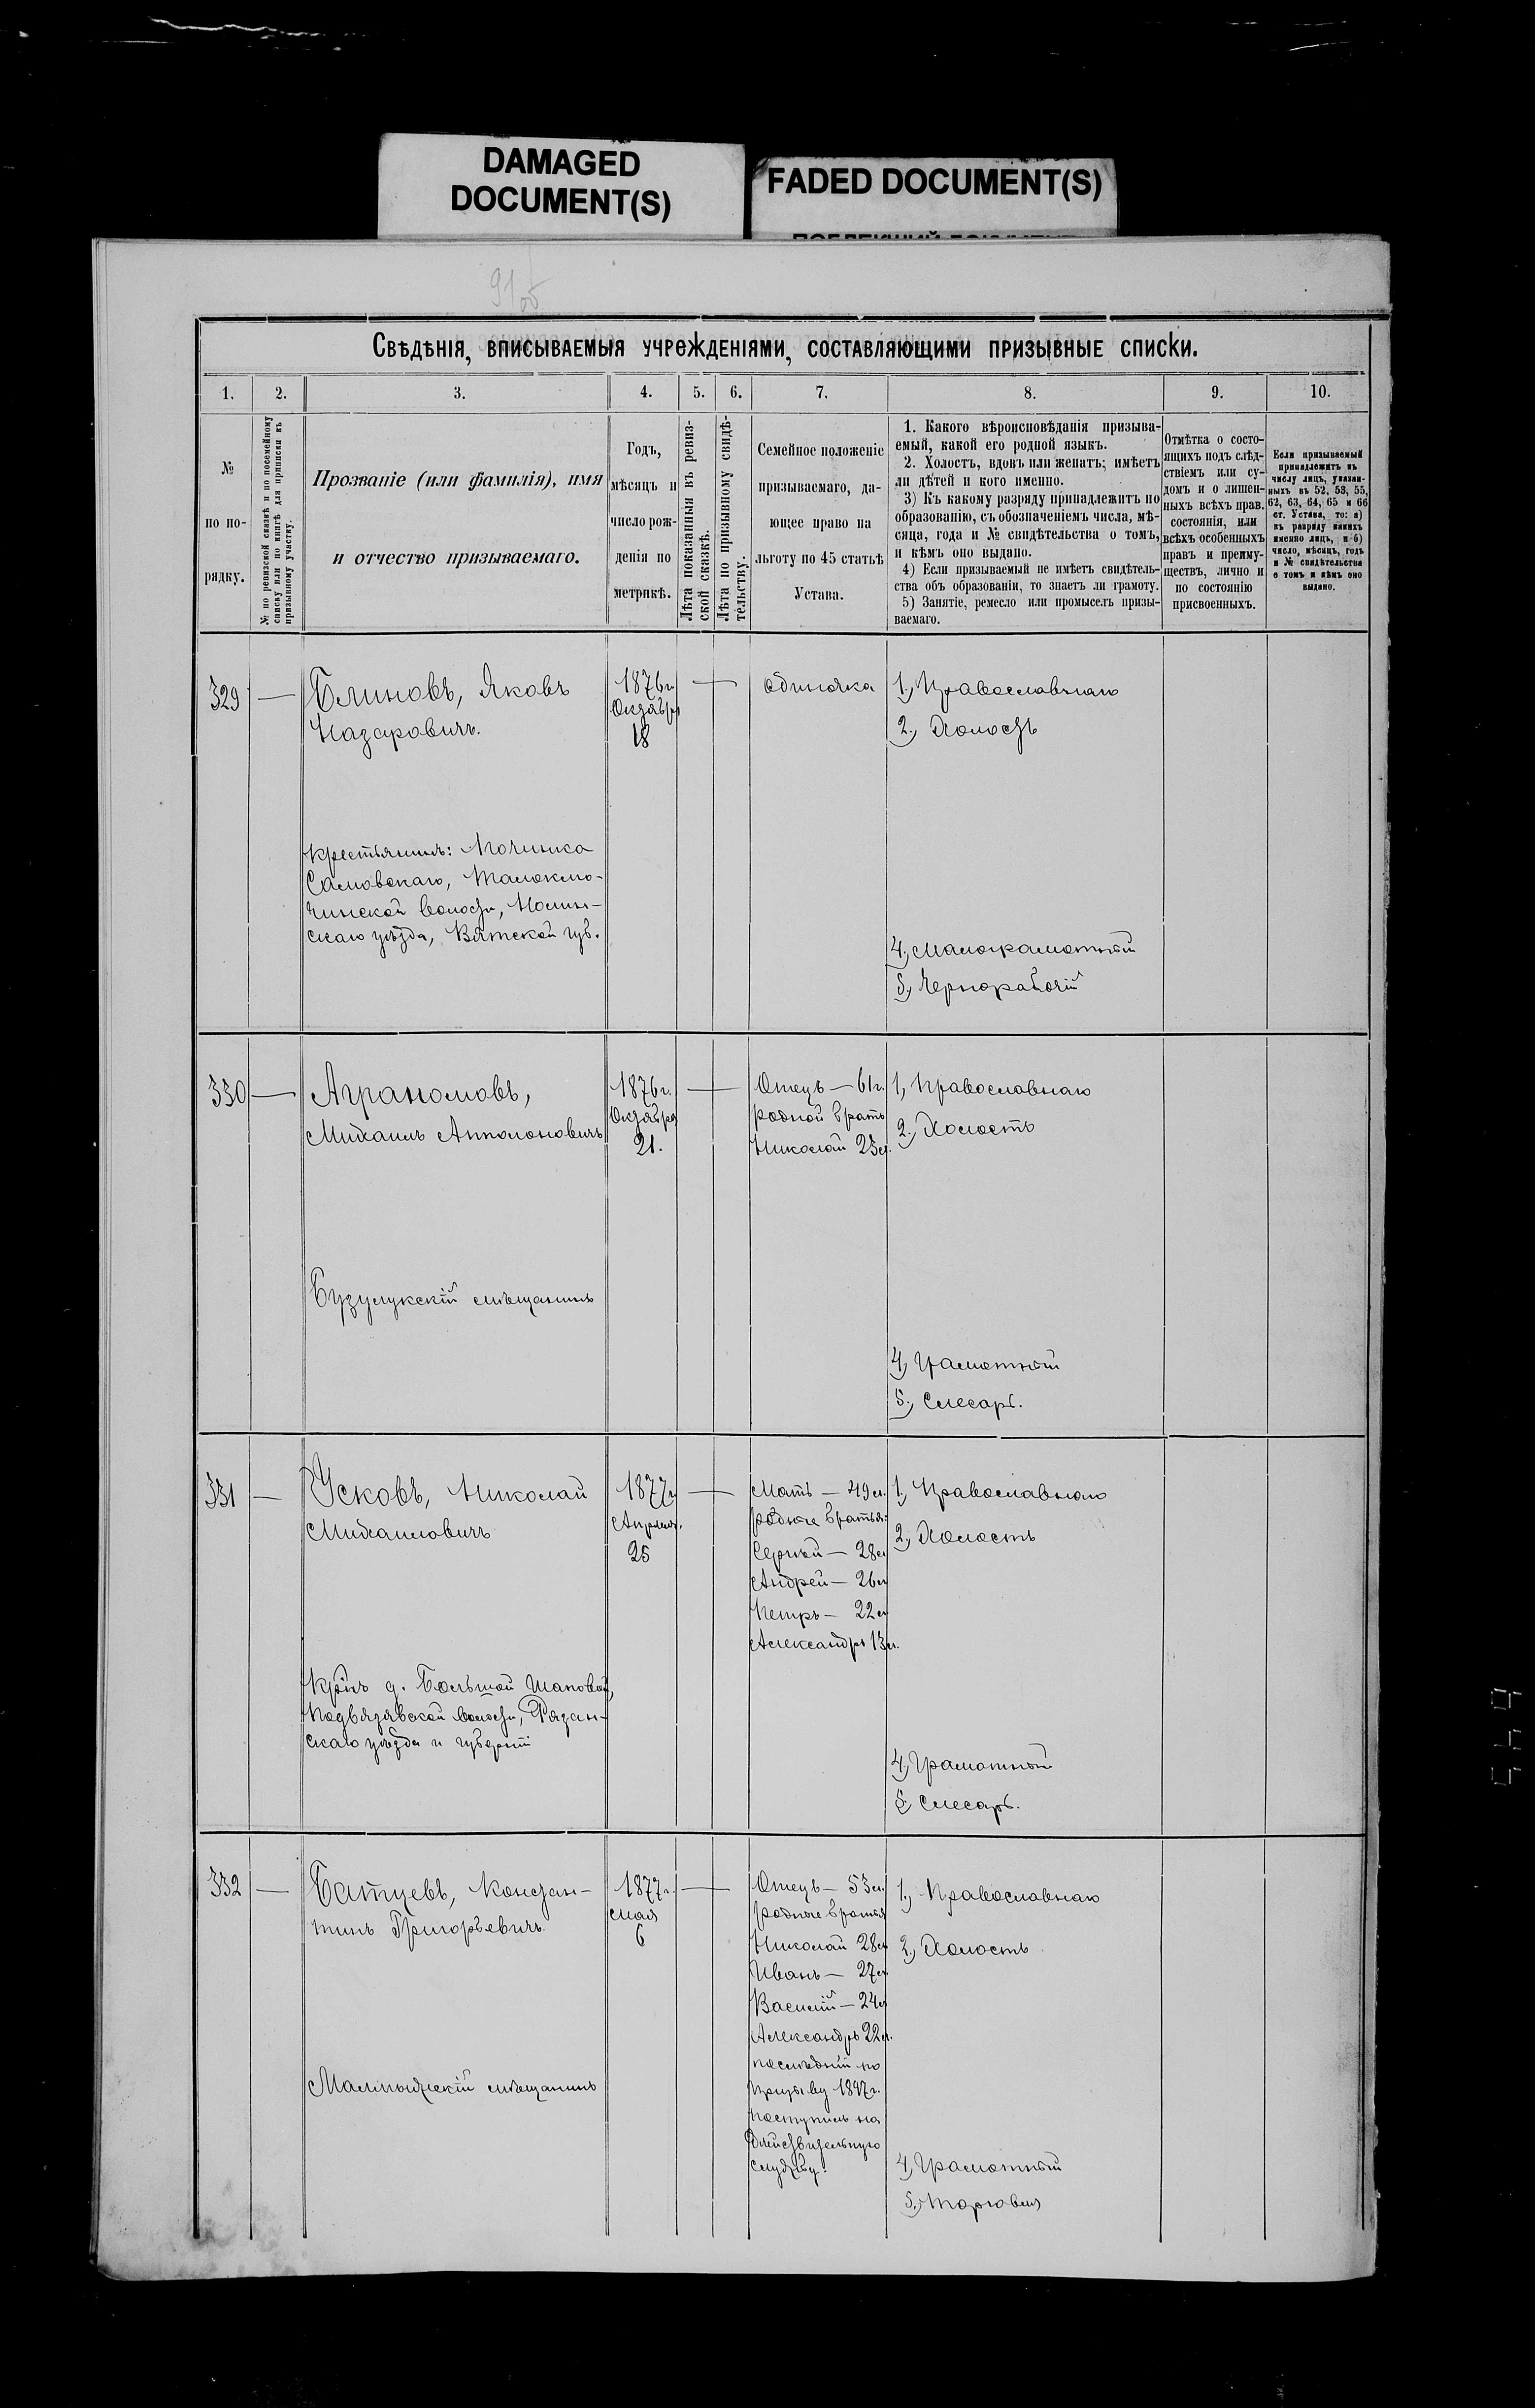 DAMAGED
DOCUMENT(S)
FADED DOCUMENT(S)
91об
Свѣдѣнія, вписываемыя учрежденіями, составляющими призывные списки.
1.
2.
3.
4.
5.
6.
7.
8.
9.
10.
№
по по-
рядку.
№ по ревизской сказкѣ и по посемейному
списку или по книгѣ для приписки къ
призывному участку.
Прозваніе (или фамилія), имя
и отчество призываемаго.
Годъ,
мѣсяцъ и
число рож-
денія по
метрикѣ.
Лѣта показанныя въ ревиз-
ской сказкѣ.
Лѣта по призывному свидѣ-
тельству.
Семейное положеніе
призываемаго, да-
ющее право на
льготу по 45 статьѣ
Устава.
1. Какого вѣроисповѣданія призыва-
емый, какой его родной языкъ.
2. Холостъ, вдовъ или женатъ; имѣетъ
ли дѣтей и кого именно.
3) Къ какому разряду принадлежитъ по
образованію, съ обозначеніемъ числа, мѣ-
сяца, года и № свидѣтельства о томъ,
и кѣмъ оно выдано.
4) Если призываемый не имѣетъ свидѣтель-
ства объ образованіи, то знаетъ ли грамоту.
5) Занятіе, ремесло или промыселъ призы-
ваемаго.
Отмѣтка о состо-
ящихъ подъ слѣд-
ствіемъ или су-
домъ и о лишен-
ныхъ всѣхъ прав.
состоянія, или
всѣхъ особенныхъ
правъ и преиму-
ществъ, лично и
по состоянію
присвоенныхъ.
Если призываемый
принадлежитъ къ
числу лицъ, указан-
ныхъ въ 52, 53, 55,
62, 63, 64, 65 и 66
ст. Устава, то: а)
къ разряду какихъ
именно лицъ, и б)
число, мѣсяцъ, годъ
и № свидѣтельства
о томъ и кѣмъ оно
выдано.
329 — Блиновъ, Яковъ
Назаровичъ.
крестьянинъ: Починка
волости, Нолин-
скаго уѣзда, Вятской губ.
1876г.
Октября
18
—
одиночка
1., Православнаго
2., Холостъ
4., Малограмотный
5., Чернорабочій
330 — Аграномовъ,
Михаилъ Апполоновичъ
Бузулукскій мѣщанинъ
1876г.
Октября
21.
—
Отецъ — 61г.
родной братъ
Николай 23л.
1, Православнаго
2., Холостъ
4, Грамотный
5., Слесарь.
331 — Усковъ, Николай
Михаиловичъ
Кр̃нъ д. Большой Шаповой,
Подвязявской волости, Рязан-
скаго уѣзда и губерніи
1877г.
Апрѣля.
25
—
Мать — 49л.
родные братья:
Сергѣй — 28л
Андрей — 26л
Петръ — 22л
Александръ 13л.
1., Православнаго
2., Холостъ
4, Грамотный
5., Слесарь.
332 — Батуевъ, Констан-
тинъ Григорьевичъ
Малмыжскій мѣщанинъ
1877г.
Мая
6
—
Отецъ — 53л.
родные братья
Николай 28л
Иванъ — 27л
Василій — 24л
Александръ 22л.
послѣдній по
призыву 1897г.
поступилъ на
дѣйствительную
службу.
1., Православнаго
2., Холостъ
4, Грамотный
5., Торговля